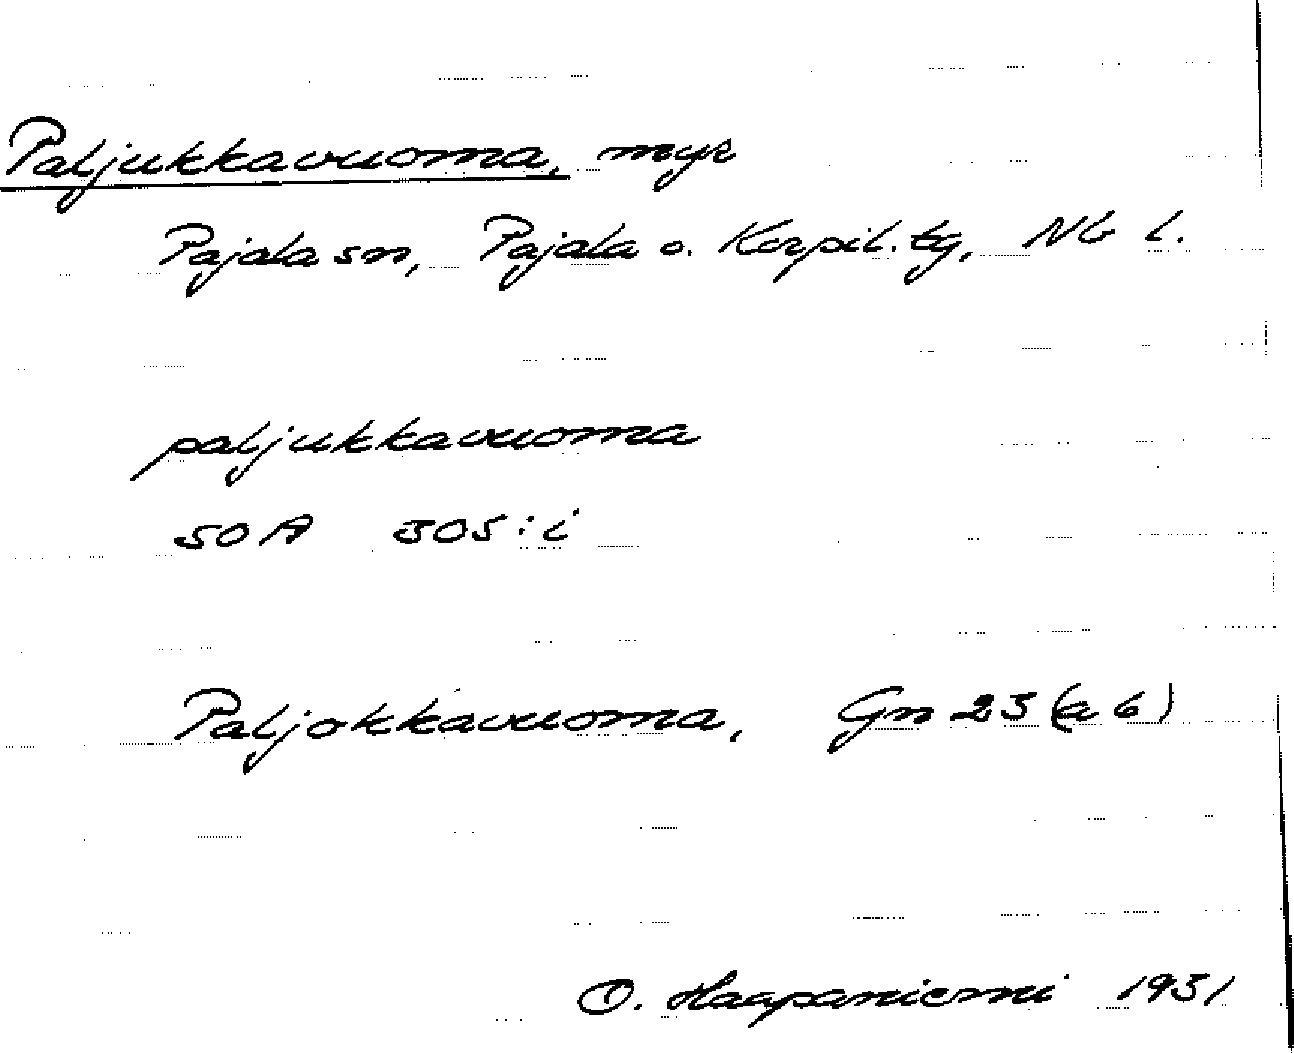 Paljukkavuoma, myr
Pajala sn, Pajala o. Korpil. tg, Nb l.
paljukkavuoma
SOA 305:i
Paljokkavuoma, Gn 23 (a b)
O. Haapaniemi 1931